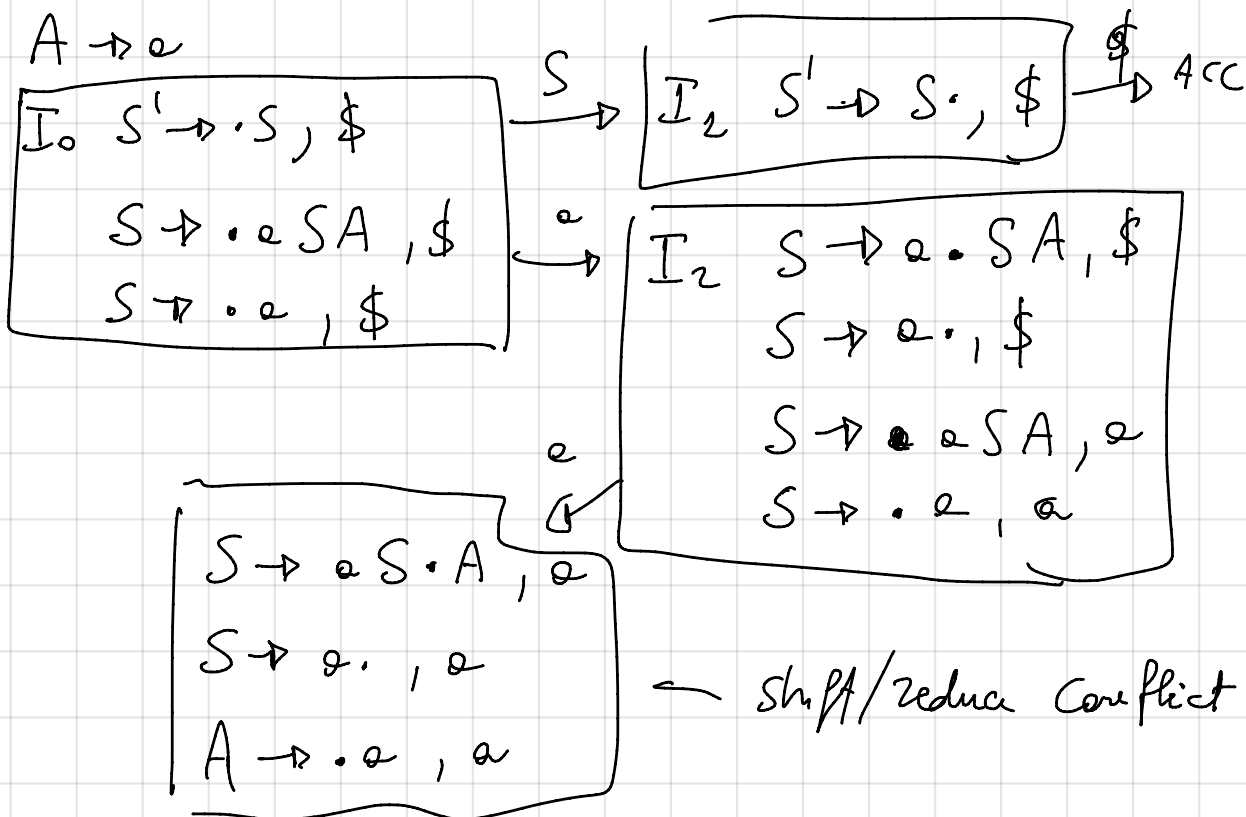 A → a
I₀ S' → ·S, $
S → ·aSA, $
S → ·a, $
S
I₂ S' → S·, $
$
ACC
a
I₂ S → a·SA, $
S → a·, $
S → ·aSA, a
S → ·a, a
a
S → aS·A, a
S → a·, a
A → ·a, a
← shift/reduce conflict